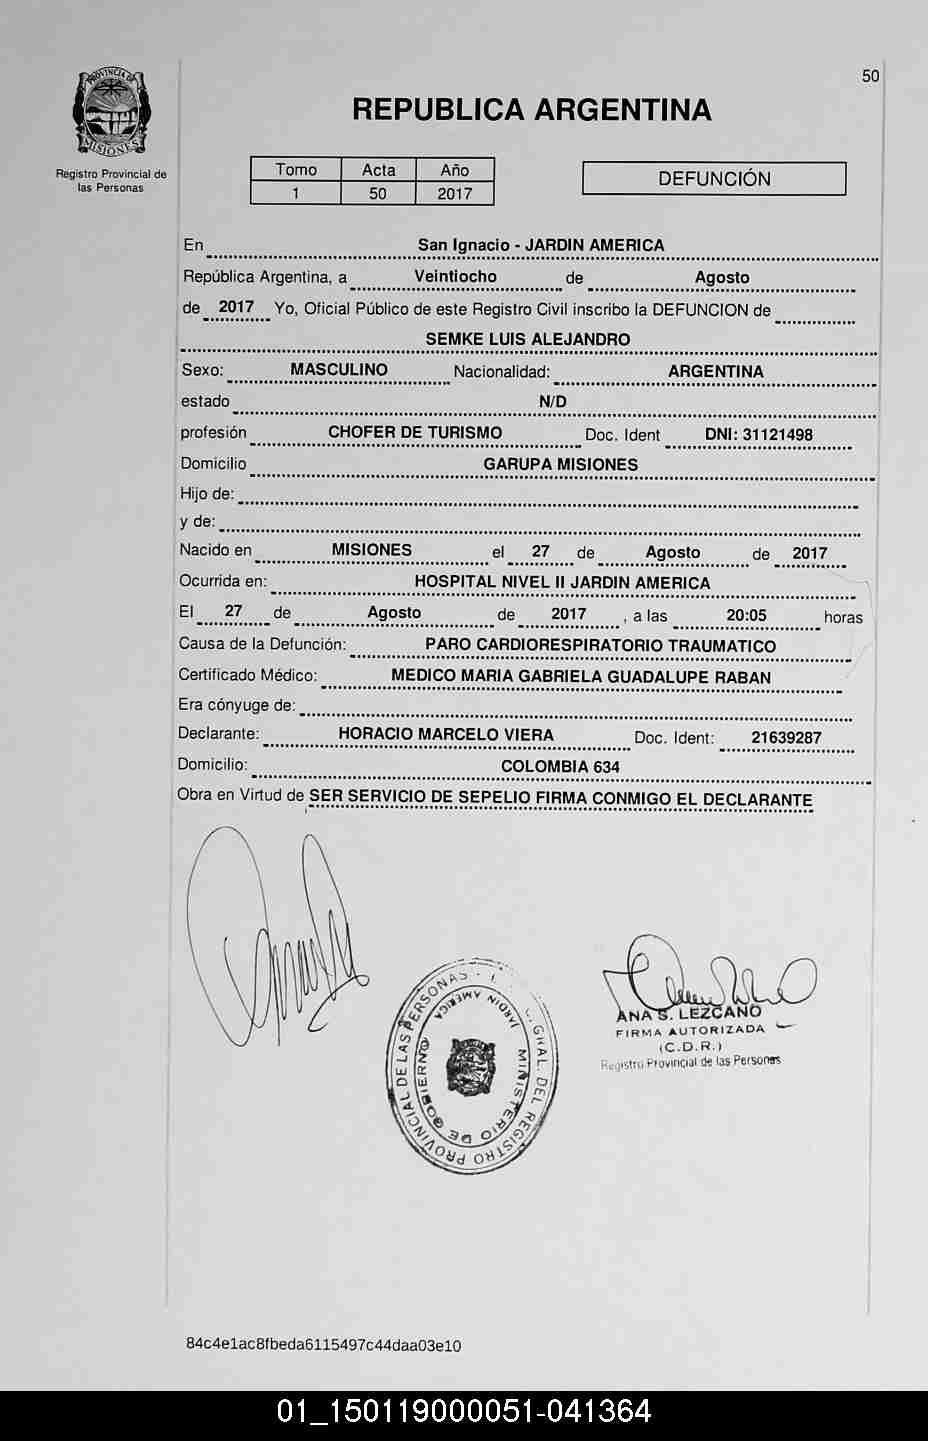 50
REPUBLICA ARGENTINA
PROVINCIA DE
MISIONES
Registro Provincial de
las Personas
Tomo Acta Año
1 50 2017
DEFUNCIÓN
En San Ignacio - JARDIN AMERICA
República Argentina, a Veintiocho de Agosto
de 2017 Yo, Oficial Público de este Registro Civil inscribo la DEFUNCION de
SEMKE LUIS ALEJANDRO
Sexo: MASCULINO Nacionalidad: ARGENTINA
estado N/D
profesión CHOFER DE TURISMO Doc. Ident DNI: 31121498
Domicilio GARUPA MISIONES
Hijo de:
y de:
Nacido en MISIONES el 27 de Agosto de 2017
Ocurrida en: HOSPITAL NIVEL II JARDIN AMERICA
El 27 de Agosto de 2017 , a las 20:05 horas
Causa de la Defunción: PARO CARDIORESPIRATORIO TRAUMATICO
Certificado Médico: MEDICO MARIA GABRIELA GUADALUPE RABAN
Era cónyuge de:
Declarante: HORACIO MARCELO VIERA Doc. Ident: 21639287
Domicilio: COLOMBIA 634
Obra en Virtud de SER SERVICIO DE SEPELIO FIRMA CONMIGO EL DECLARANTE
GRAL. DEL REGISTRO PROVINCIAL DE LAS PERSONAS
MINISTERIO DE GOBIERNO
JARDIN AMERICA
ANA S. LEZCANO
FIRMA AUTORIZADA
(C.D.R.)
Registro Provincial de las Personas
84c4e1ac8fbeda6115497c44daa03e10
01_150119000051-041364